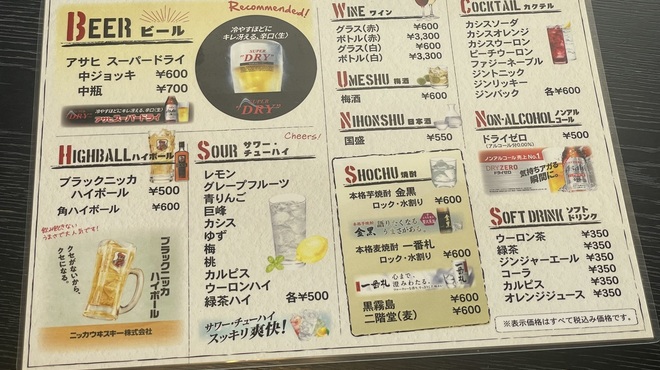 BEER ビール
Recommended!
アサヒ スーパードライ
中ジョッキ ¥600
中瓶 ¥700
冷やすほどに
キレ冴える、辛口〈生〉
SUPER
"DRY"
冷やすほどにキレ冴える、辛口〈生〉
DRY アサヒスーパードライ
HIGHBALL ハイボール
ブラックニッカ
ハイボール ¥500
角ハイボール ¥600
クセがないから、
クセになる。
ブラックニッカ
ハイボール
ニッカウヰスキー株式会社
SOUR サワー・
チューハイ
Cheers!
レモン
グレープフルーツ
青りんご
巨峰
カシス
ゆず
梅
桃
カルピス
ウーロンハイ
緑茶ハイ 各¥500
サワー・チューハイ
スッキリ爽快!
WINE ワイン
グラス(赤) ¥600
ボトル(赤) ¥3,300
グラス(白) ¥600
ボトル(白) ¥3,300
UMESHU 梅酒
梅酒 ¥600
NIHONSHU 日本酒
国盛 ¥550
SHOCHU 焼酎
本格芋焼酎 金黒
ロック・水割り ¥600
金黒
語りたくなる
うまさがある。
本格麦焼酎 一番札
ロック・水割り ¥600
一番札
心まで、
澄みわたる。
黒霧島 ¥600
二階堂(麦) ¥600
COCKTAIL カクテル
カシスソーダ
カシスオレンジ
カシスウーロン
ピーチウーロン
ファジーネーブル
ジントニック
ジンリッキー
ジンバック 各¥600
NON-ALCOHOL ノンアル
コール
ドライゼロ ¥500
(アルコール分0.00%)
ノンアルコール 売上No.1
DRYZERO
ドライゼロ
気持ちアガる
瞬間に。
SOFT DRINK ソフト
ドリンク
ウーロン茶 ¥350
緑茶 ¥350
ジンジャーエール ¥350
コーラ ¥350
カルピス ¥350
オレンジジュース ¥350
※表示価格はすべて税込み価格です。